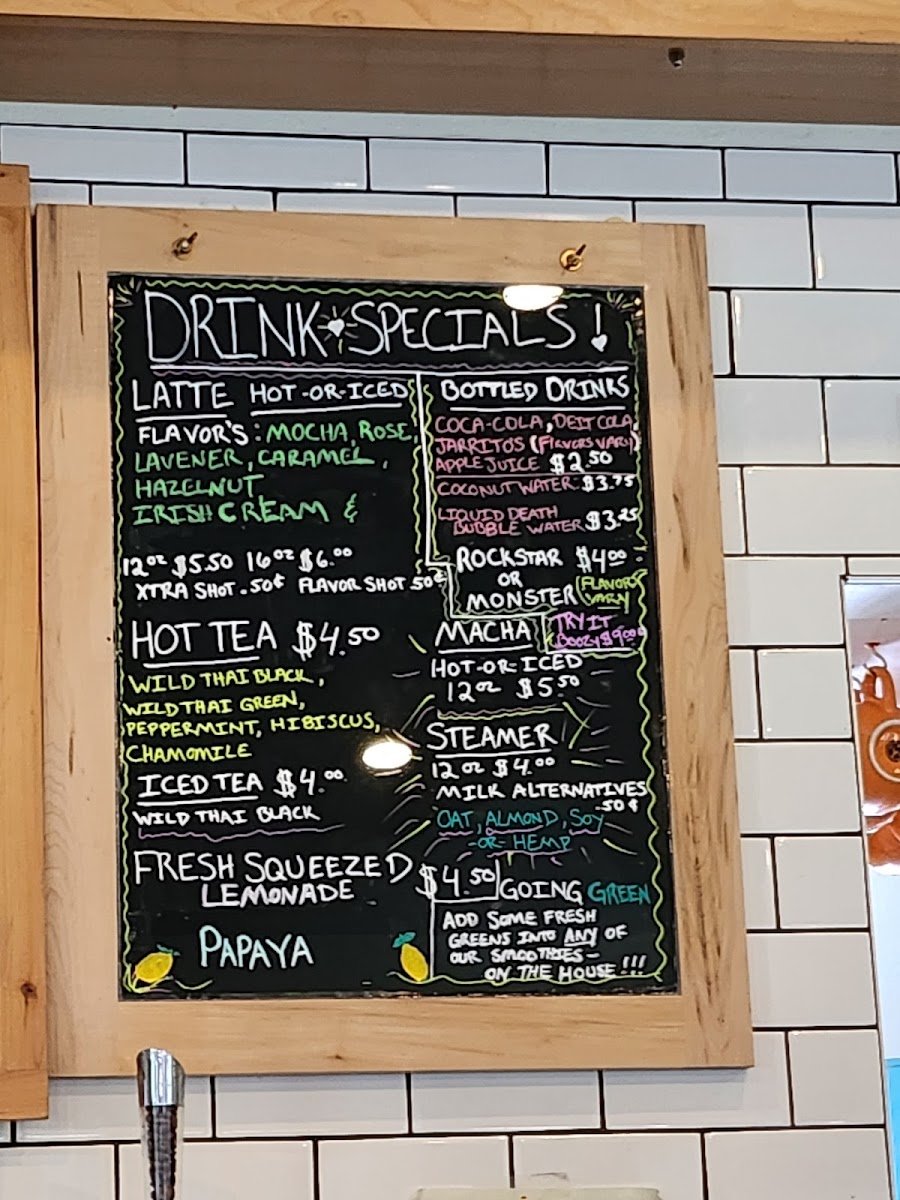 DRINK SPECIALS!
LATTE HOT-OR-ICED
FLAVOR'S: MOCHA, ROSE,
LAVENER, CARAMEL,
HAZELNUT,
IRISH CREAM &
12oz $5.50 16oz $6.00
XTRA SHOT .50¢ FLAVOR SHOT .50¢
HOT TEA $4.50
WILD THAI BLACK,
WILD THAI GREEN,
PEPPERMINT, HIBISCUS,
CHAMOMILE
ICED TEA $4.00
WILD THAI BLACK
FRESH SQUEEZED
LEMONADE
$4.50
PAPAYA
BOTTLED DRINKS
COCA-COLA, DEIT COLA,
JARRITO'S (FLAVORS VARY)
APPLE JUICE $2.50
COCONUT WATER $3.75
LIQUID DEATH
BUBBLE WATER $3.25
ROCKSTAR $4.00
OR
MONSTER (FLAVORS
VARY)
MACHA
TRY IT
BOOZY $9.00
HOT-OR-ICED
12oz $5.50
STEAMER
12oz $4.00
MILK ALTERNATIVES
.50¢
OAT, ALMOND, SOY
-OR- HEMP
GOING GREEN
ADD SOME FRESH
GREENS INTO ANY OF
OUR SMOOTHIES-
ON THE HOUSE!!!